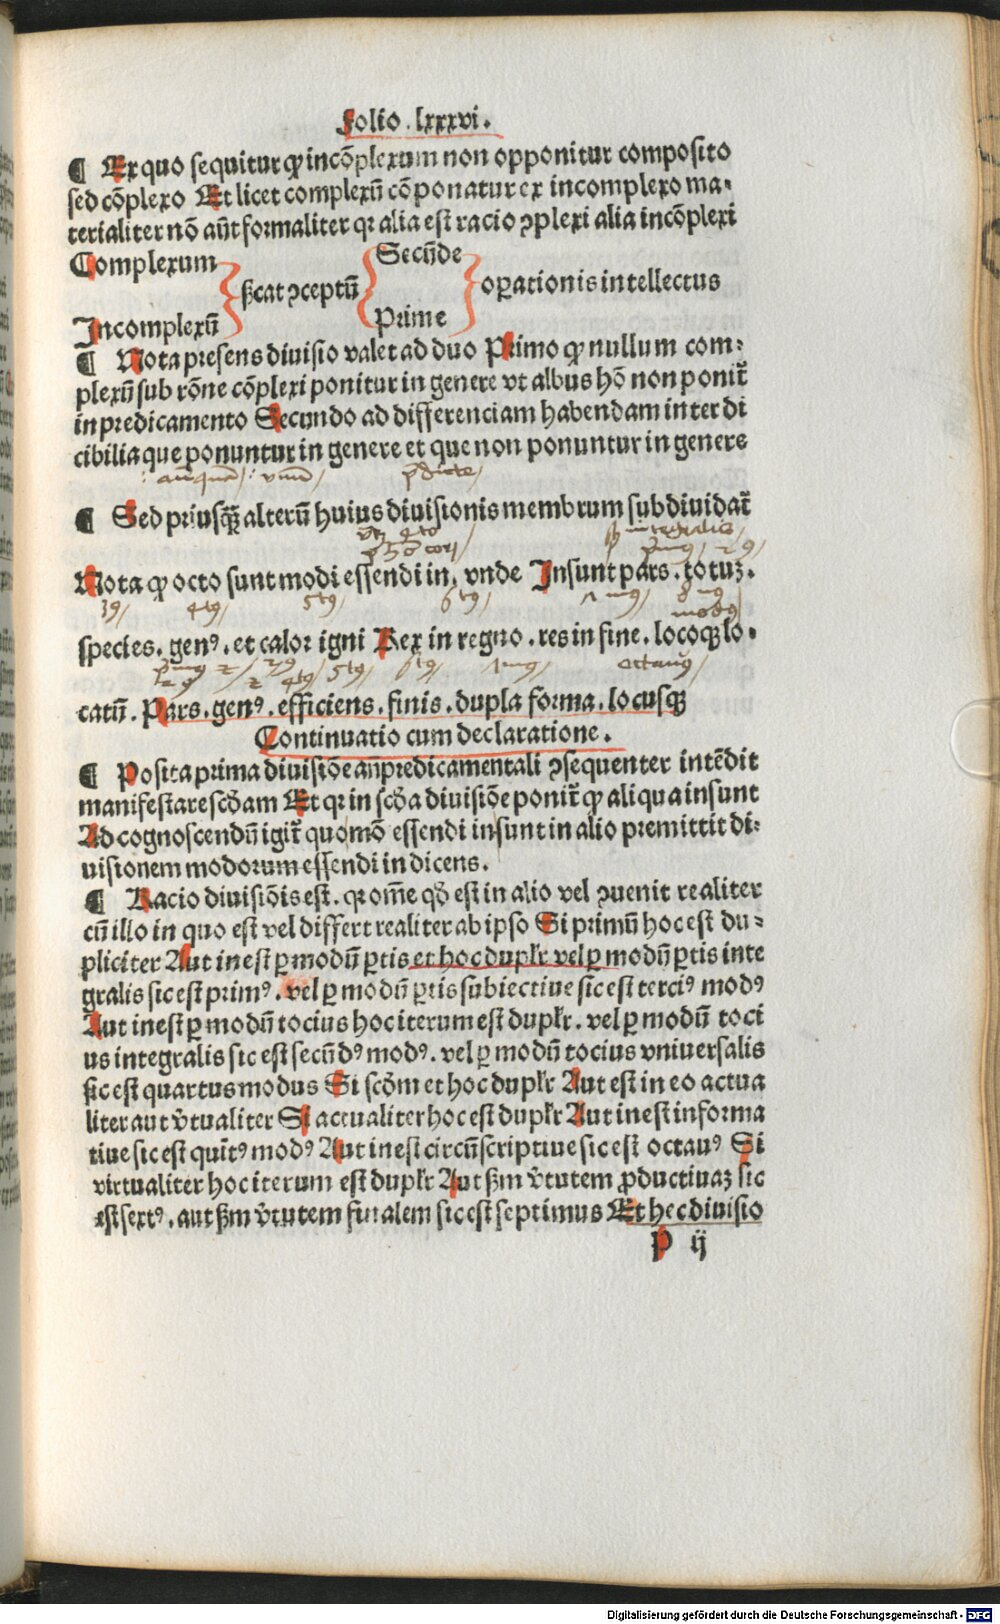 Folio . lxxxvi.
¶ Ex quo sequitur ꝙ incōplexum non opponitur composito
sed cōplexo Et licet complexū cōponatur ex incomplexo ma-
terialiter nō aūt formaliter qꝛ alia est racio ꝯplexi alia incōplexi
Complexum
Secūde
ßcat ꝯceptū
oꝑationis intellectus
Incomplexū
Prime
¶ Nota presens diuisio valet ad duo Primo ꝙ nullum com-
plexū sub rōne cōplexi ponitur in genere vt albus hō non ponit᷑
in predicamento Secundo ad differenciam habendam inter di
cibilia que ponuntur in genere et que non ponuntur in genere
¶ Sed priusꝙ̄ alterū huius diuisionis membrum subdiuidat᷑
Nota ꝙ octo sunt modi essendi in . vnde Insunt pars . totuꝫ .
3ꝰ 4tꝰ 5tꝰ 6tꝰ
species . genꝰ . et calor igni Rex in regno . res in fine . locoqꝫ lo-
4tꝰ 5tꝰ 6tꝰ octauꝰ
catū . Pars . genꝰ . efficiens . finis . dupla forma . locusqꝫ
Continuatio cum declaratione .
¶ Posita prima diuisiōe an̄predicamentali ꝯsequenter intēdit
manifestare scḋam Et qꝛ in scḋa diuisiōe ponit᷑ ꝙ aliqua insunt
Ad cognoscendū igit᷑ quomō essendi insunt in alio premittit di-
uisionem modorum essendi in dicens .
¶ Racio diuisiōis est . qꝛ om̄e qḋ est in alio vel ꝯuenit realiter
cū illo in quo est vel differt realiter ab ipso Si primū hoc est du-
pliciter Aut inest ꝑ modū ꝑtis et hoc duplr̄ vel ꝑ modū ꝑtis inte
gralis sic est primꝰ . vel ꝑ modū ꝑtis subiectiue sic est terciꝰ modꝰ
Aut inest ꝑ modū tocius hoc iterum est duplr̄ . vel ꝑ modū toci
us integralis sic est secūdꝰ modꝰ . vel ꝑ modū tocius vniuersalis
sic est quartus modus Si scḋm et hoc duplr̄ Aut est in eo actua
liter aut v̄tualiter Si actualiter hoc est duplr̄ Aut inest informa
tiue sic est quītꝰ modꝰ Aut inest circūscriptiue sic est octauꝰ Si
virtualiter hoc iterum est duplr̄ Aut ßm v̄tutem ꝓductiuaꝫ sic
est sextꝰ . aut ßm v̄tutem finalem sic est septimus Et hec diuisio
P ij
Digitalisierung gefördert durch die Deutsche Forschungsgemeinschaft - DFG